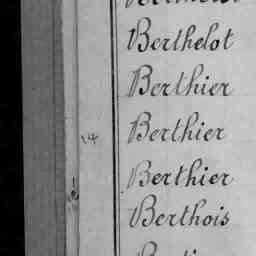 Berthelot
Berthier
14 Berthier
Berthier
Berthois